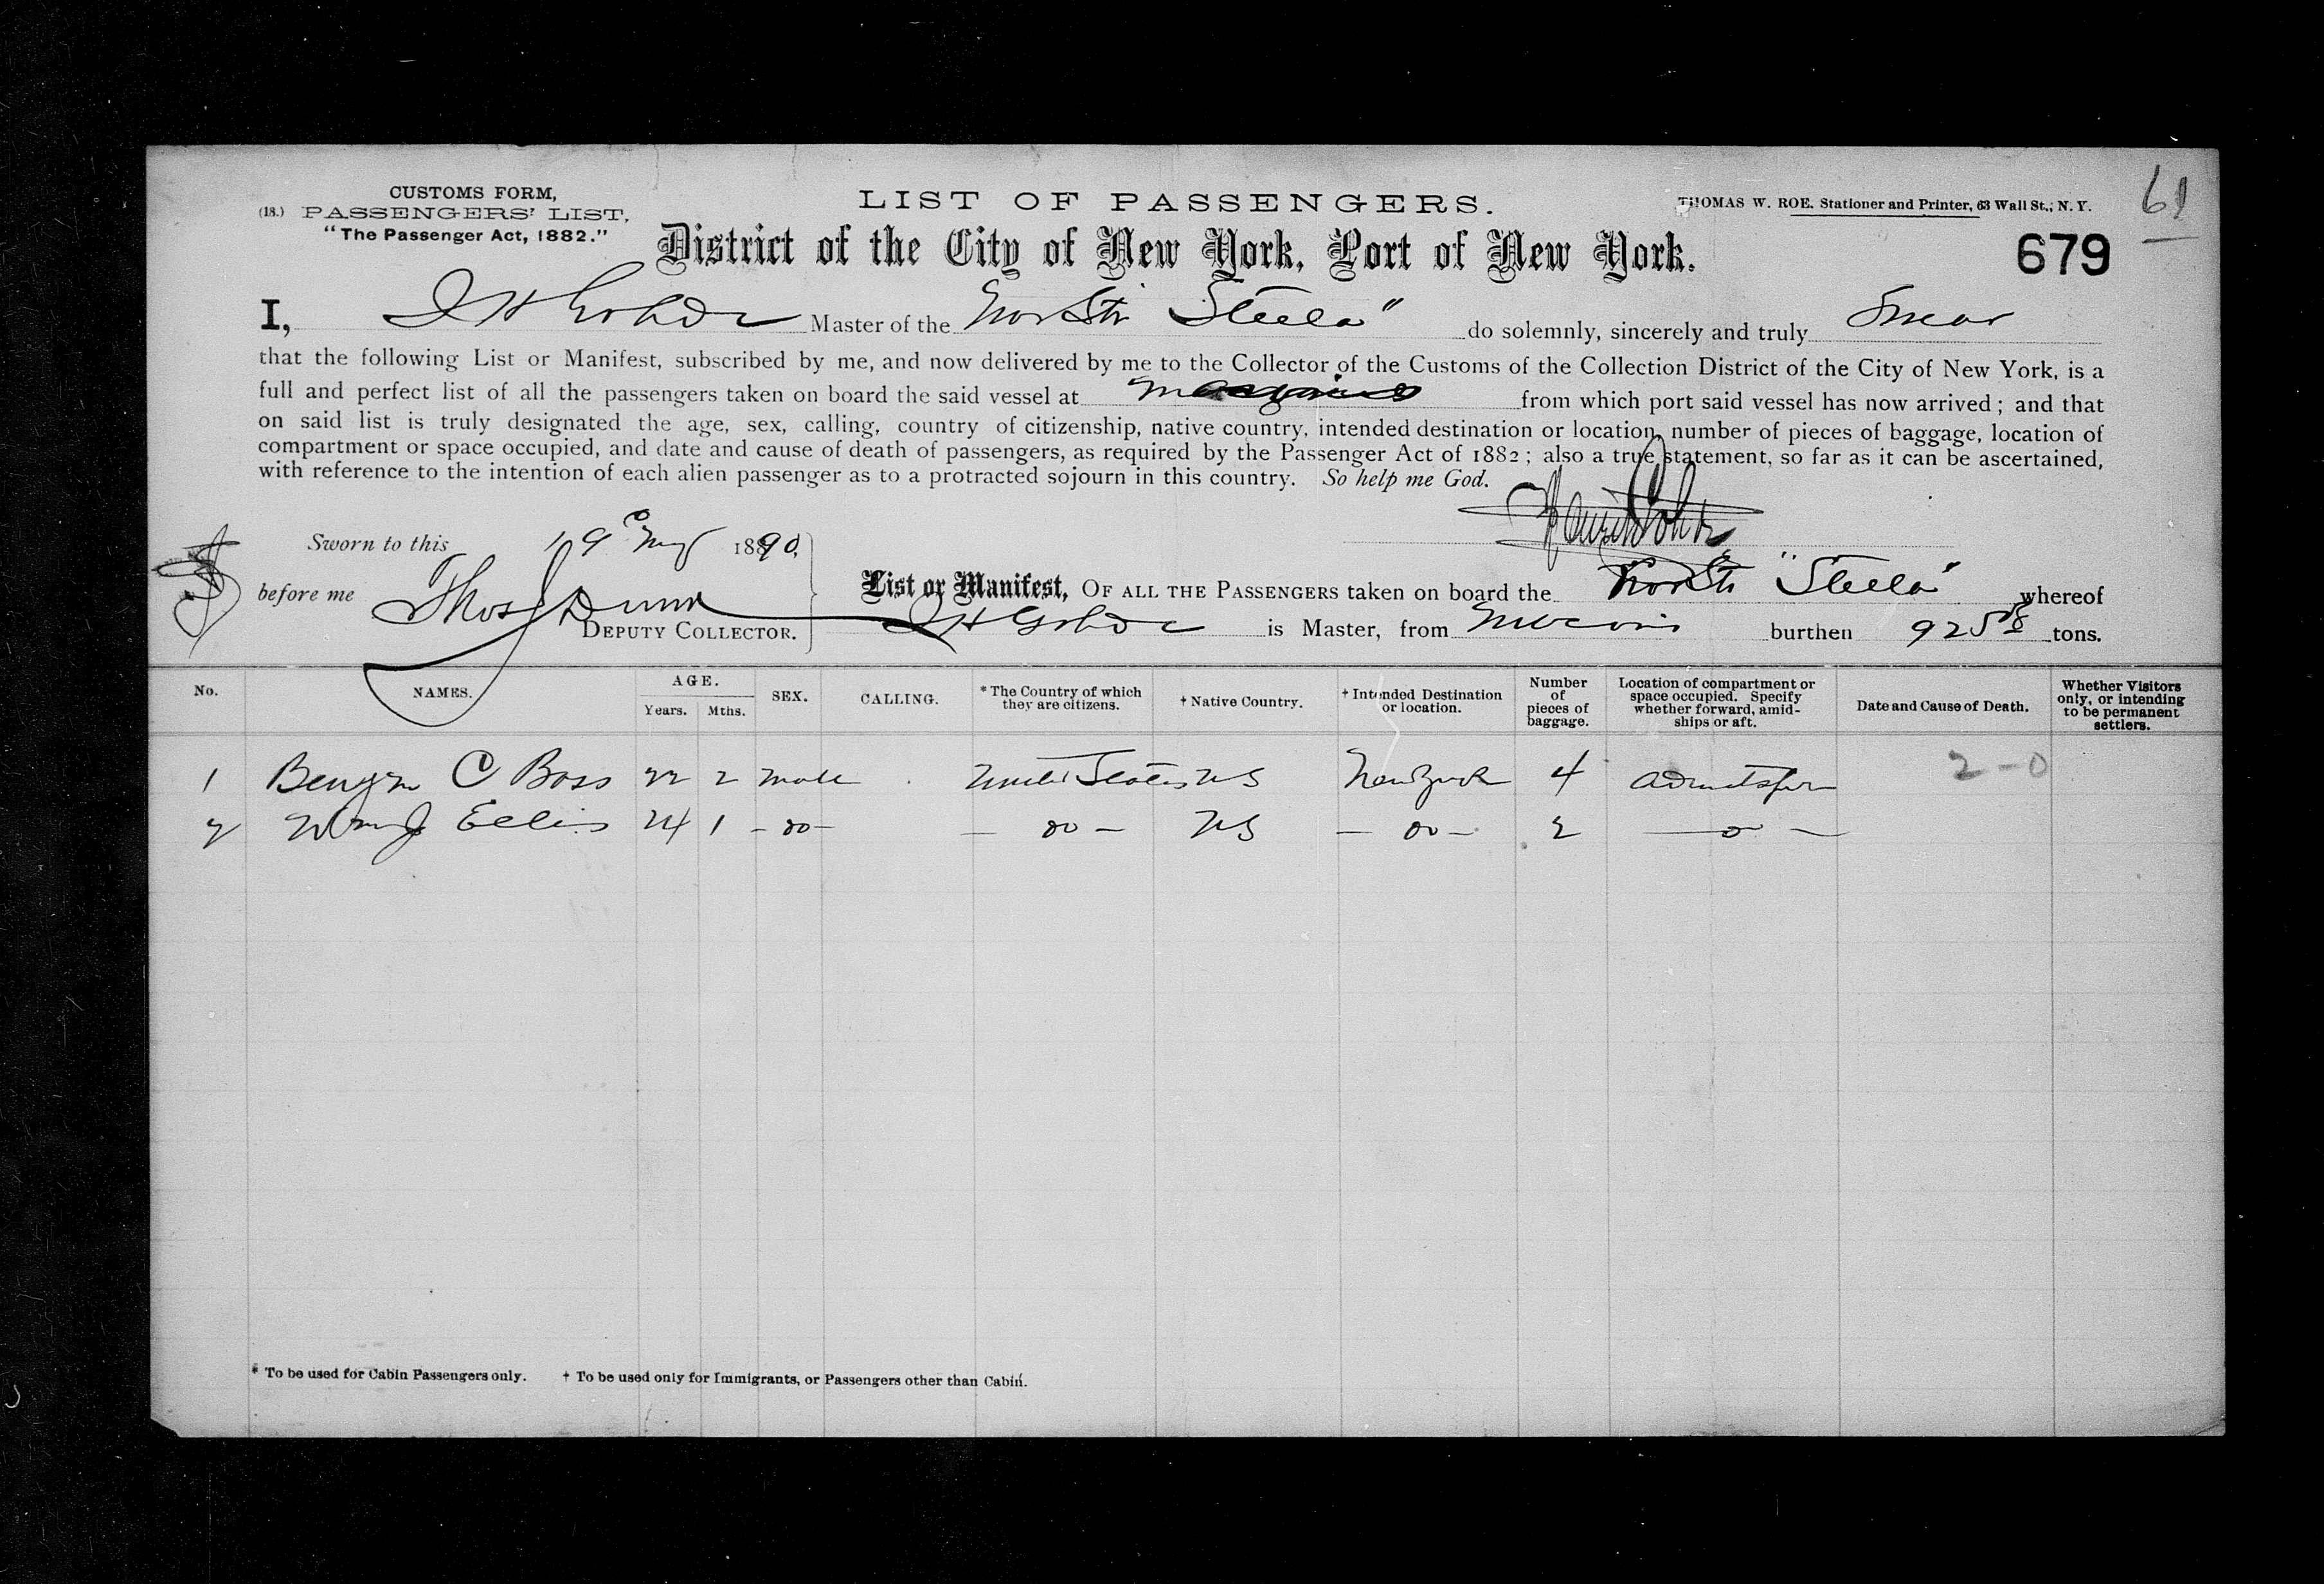 CUSTOMS FORM,
(18.) PASSENGERS' LIST,
"The Passenger Act, 1882."
LIST OF PASSENGERS.
THOMAS W. ROE, Stationer and Printer, 63 Wall St., N. Y.
61
District of the City of New York, Port of New York.
679
I, Master of the Nor Str "Stella" do solemnly, sincerely and truly Swear
that the following List or Manifest, subscribed by me, and now delivered by me to the Collector of the Customs of the Collection District of the City of New York, is a
full and perfect list of all the passengers taken on board the said vessel at from which port said vessel has now arrived; and that
on said list is truly designated the age, sex, calling, country of citizenship, native country, intended destination or location, number of pieces of baggage, location of
compartment or space occupied, and date and cause of death of passengers, as required by the Passenger Act of 1882; also a true statement, so far as it can be ascertained,
with reference to the intention of each alien passenger as to a protracted sojourn in this country. So help me God.
Sworn to this 19 May 1890,
before me Thos J Dunn
DEPUTY COLLECTOR.
List or Manifest, OF ALL THE PASSENGERS taken on board the Nor Str "Stella" whereof
is Master, from burthen 925 tons.
No. NAMES. AGE. Years. Mths. SEX. CALLING. * The Country of which they are citizens. † Native Country. † Intended Destination or location. Number of pieces of baggage. Location of compartment or space occupied. Specify whether forward, amidships or aft. Date and Cause of Death. Whether Visitors only, or intending to be permanent settlers.
1 C Boss 22 2 male United States US New York 4 2-0
2 Wm J Ellis 24 1 - do - - do - US - do - 2 - do -
* To be used for Cabin Passengers only. † To be used only for Immigrants, or Passengers other than Cabin.